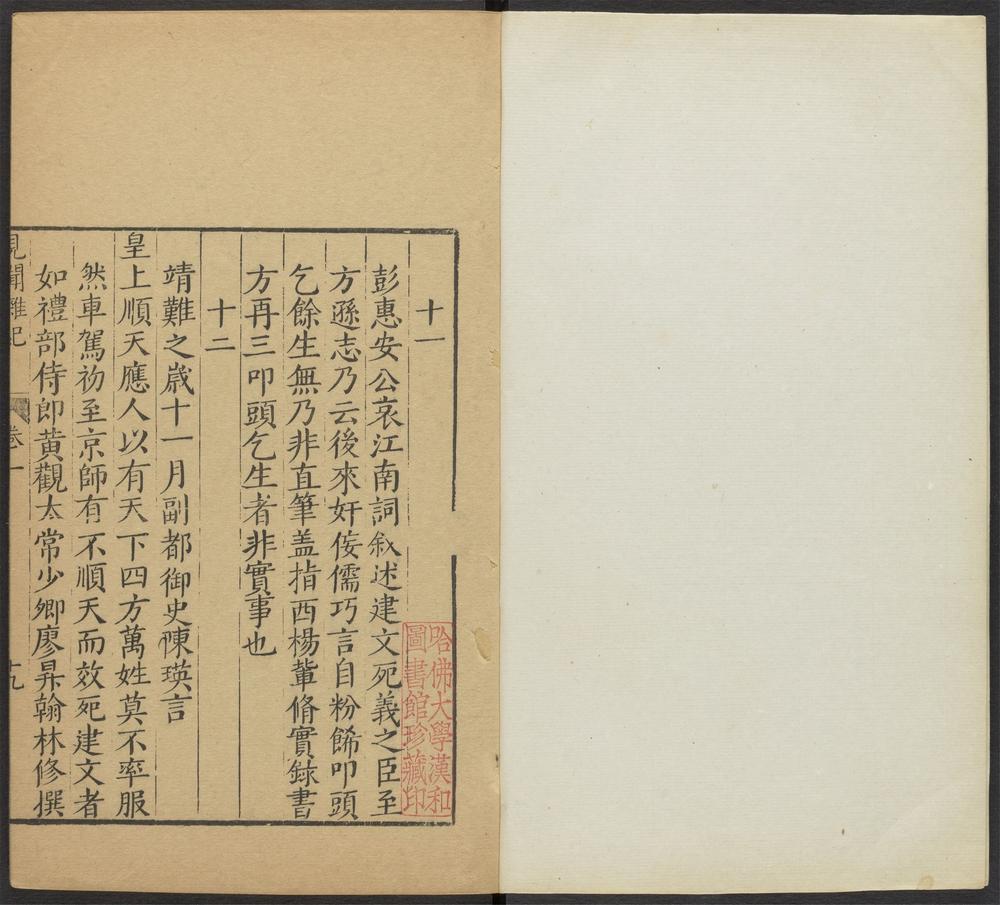 十一
彭惠安公哀江南詞叙述建文死義之臣至
方遜志乃云後來奸侫儒巧言自粉餙叩頭
乞餘生無乃非直筆盖指西楊軰脩實錄書
方再三叩頭乞生者非實事也
十二
靖難之歲十一月副都御史陳瑛言
皇上順天應人以有天下四方萬姓莫不率服
然車駕初至京師有不順天而效死建文者
如禮部侍郎黃觀太常少卿廖昇翰林修撰
見聞雜記
卷一
十九
哈佛大學漢和
圖書館珍藏印